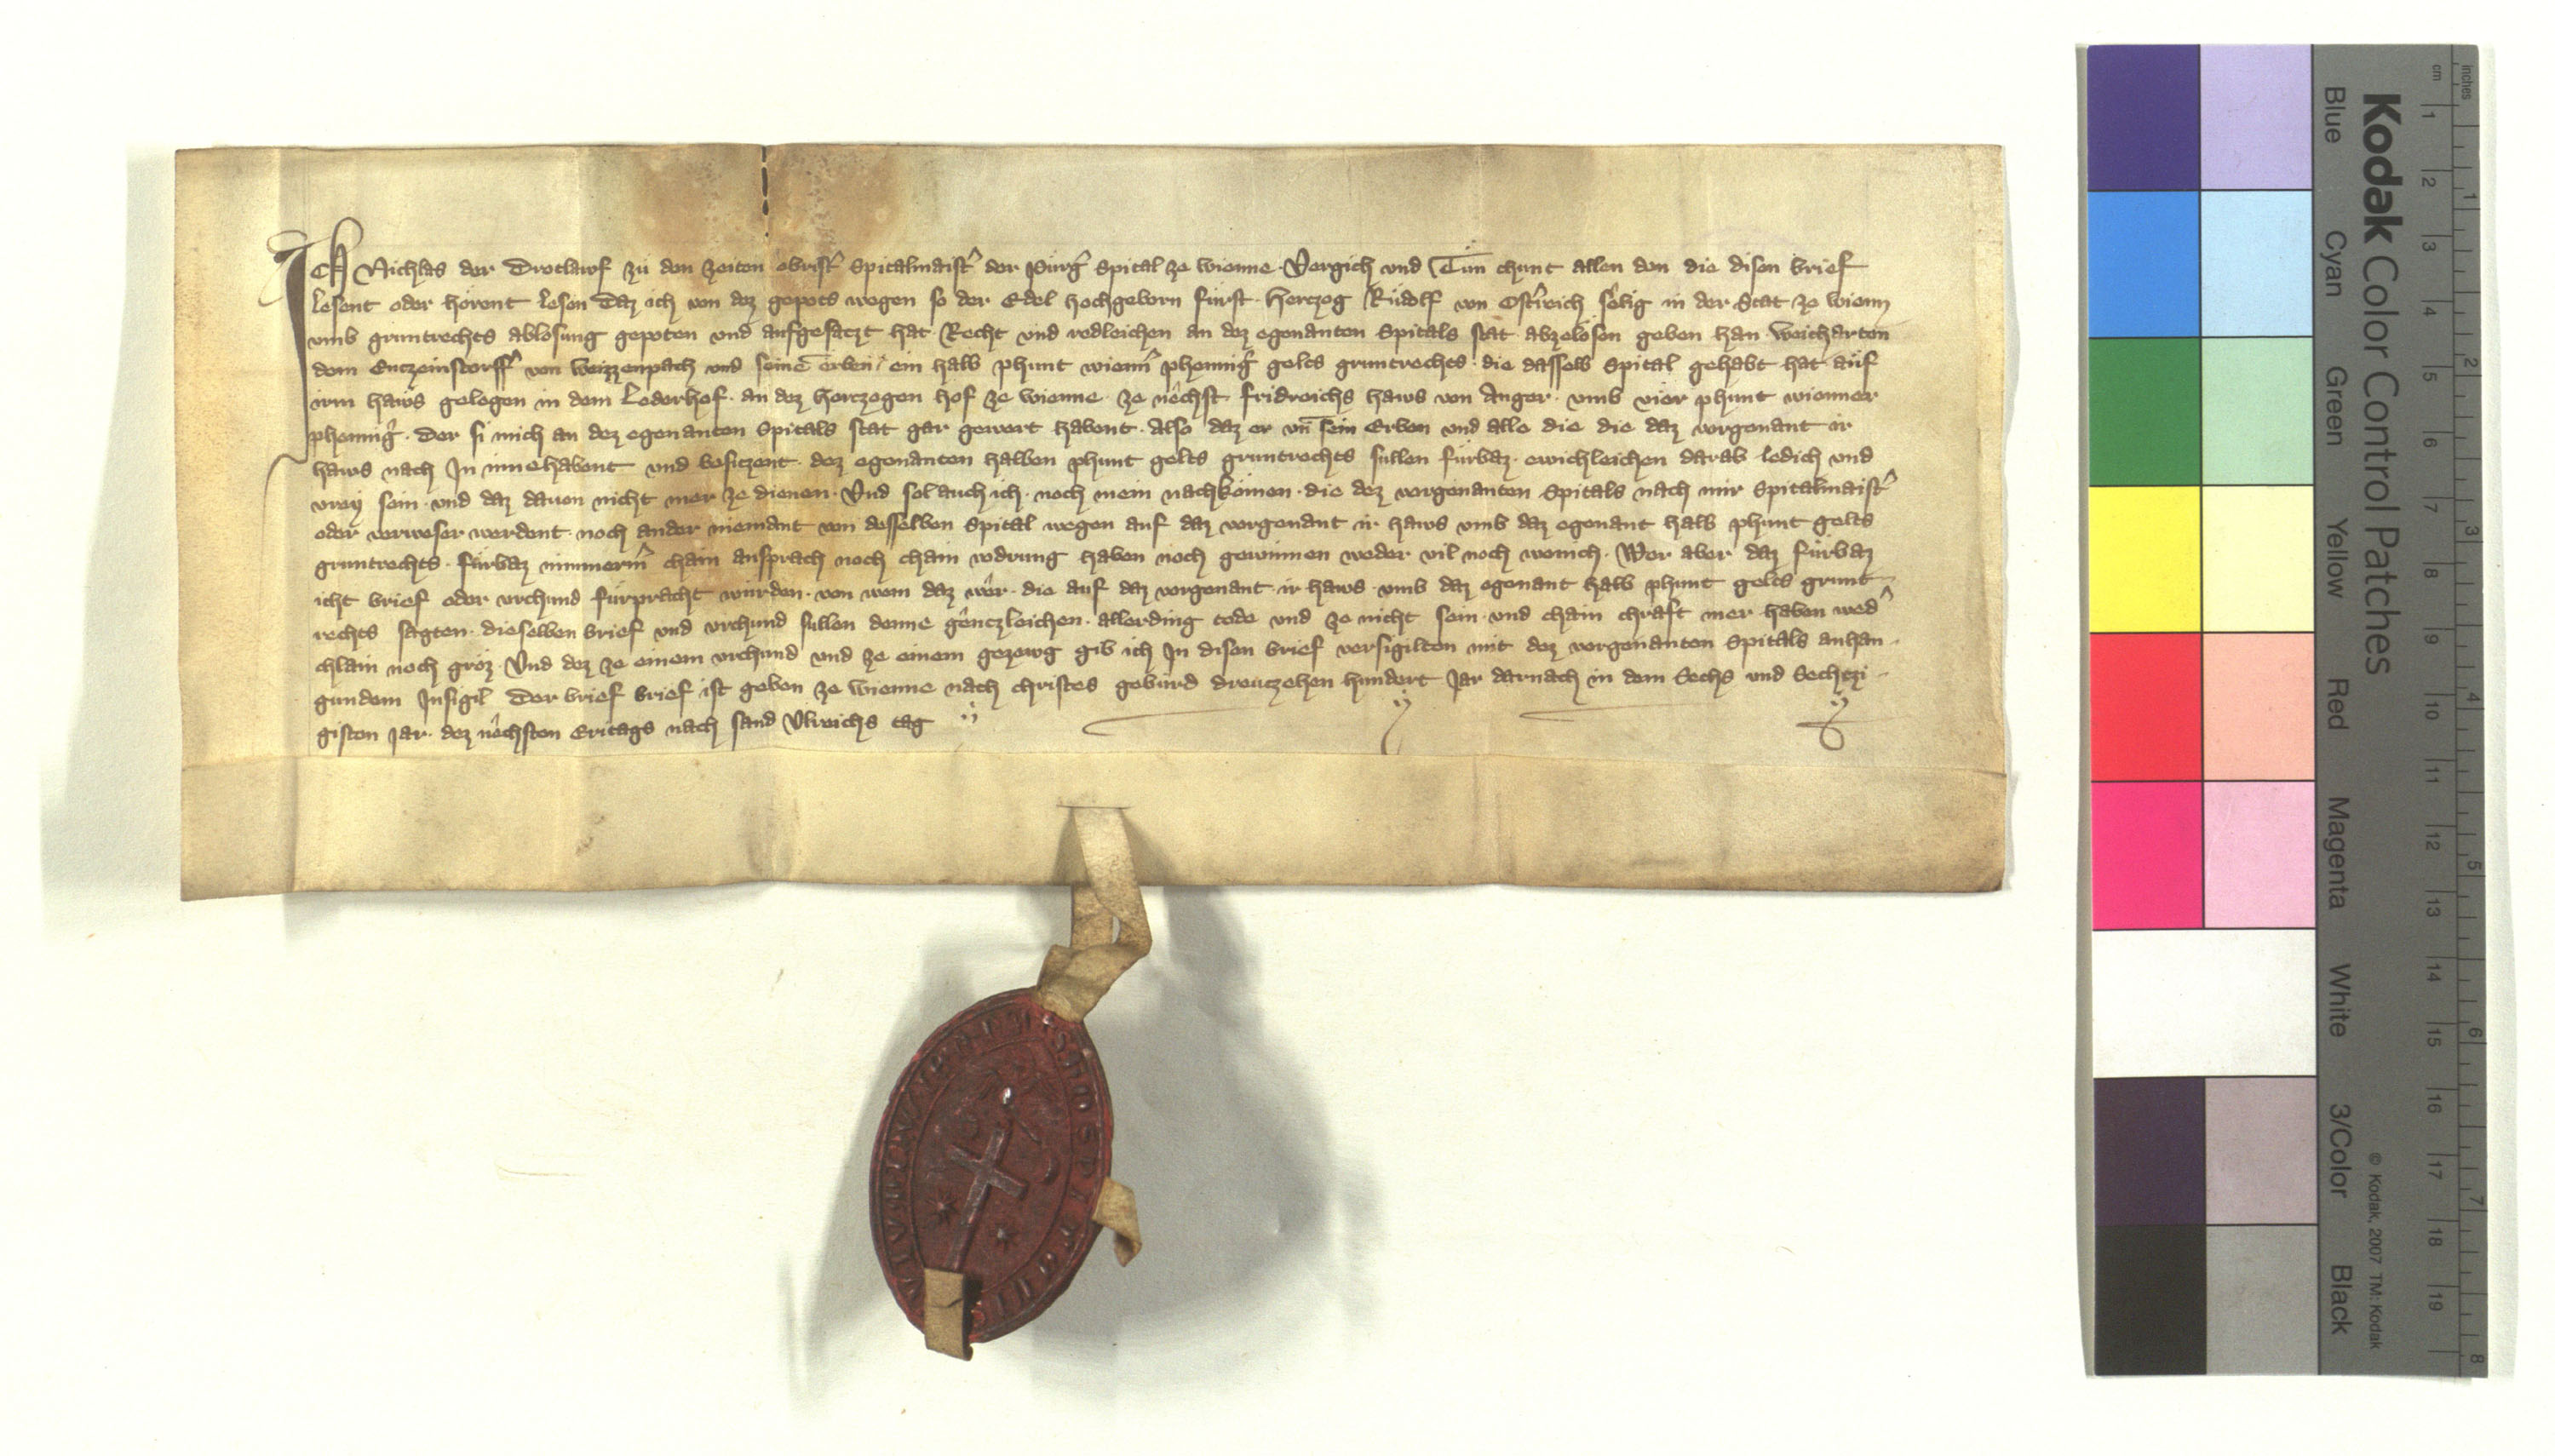 Ich Nichlas der Drotlauf zü den zeiten obristˀ Spitalmaistˀ der Purgˀ Spital ze wienne · Vergich vnd Tün chunt allen den die disen brief
lesent oder hörent lesen Daz ich von dez gepots wegen so der Edel hochgeborn fürst · hertzog Rüdolf von Ostˀreich sêlig in der Stat ze wienn
vmb gruntrechts ablosung gepoten vnd aufgesatzt hat · Recht vnd redleichen an dez egenanten Spitals stat abzelösen geben han Weicharten
dem Enczeinstorffˀ von Weizzenpach vnd seinē erben ein halb phunt wiennˀ phenningˀ gelts gruntrechts · die dasselb Spital gehabt hat auf
irm haws gelegen in dem Lederhof · an dez herczogen hof ze wienne · ze nêchst fridreichs haws von Anger · vmb vier phunt wienner
phenningˀ · der si mich an dez egenanten Spitals stat gar gewert habent · Also daz er vn̄ sein Erben vnd alle die die daz vorgenant ir
haws nach In innehabent vnd besiczent · dez egenanten halben phunt gelts gruntrechts sullen fürbaz · ewichleichen darab ledich vnd
vrey sein · vnd daz dauon nicht mer ze dienen · Vnd sol auch ich · noch mein nachkömen · die dez vorgenanten Spitals nach mir Spitalmaistˀ
oder verweser werdent · noch ander niemant von desselben Spital wegen auf daz vorgenant ir haws vmb daz egenant halb phunt gelts
gruntrechts · fürbaz nimmermˀ chain ansprach noch chain vodrung haben noch gewinnen weder vil noch wenich · Wer aber daz fürbaz
icht brief oder vrchund fürpracht würden · von wem daz wêr · die auf daz vorgenant ir haws · vmb daz egenant halb phunt gelts grunt-
rechts sagten · dieselben brief vnd vrchund sullen denne gênczleichen · allerding tode vnd ze nicht sein · vnd chain chraft mer haben wedˀ
chlain noch groz · Vnd dez ze einem vrchund vnd ze einem gezewg gib ich In disen brief versigilten mit dez vorgenanten Spitals anhan-
gundem Insigil der brief brief ist geben ze wienne nach christes gebürd dreuczehen hundert Jar darnach in dem Sechs vnd Sechtzi-
gisten Jar · dez nêchsten Eritags nach sand Vlreichs tag
Kodak Color Control Patches
Blue Cyan Green Yellow Red Magenta White 3/Color Black
© Kodak, 2007 TM: Kodak
cm 1 2 3 4 5 6 7 8 9 10 11 12 13 14 15 16 17 18 19
inches 1 2 3 4 5 6 7 8